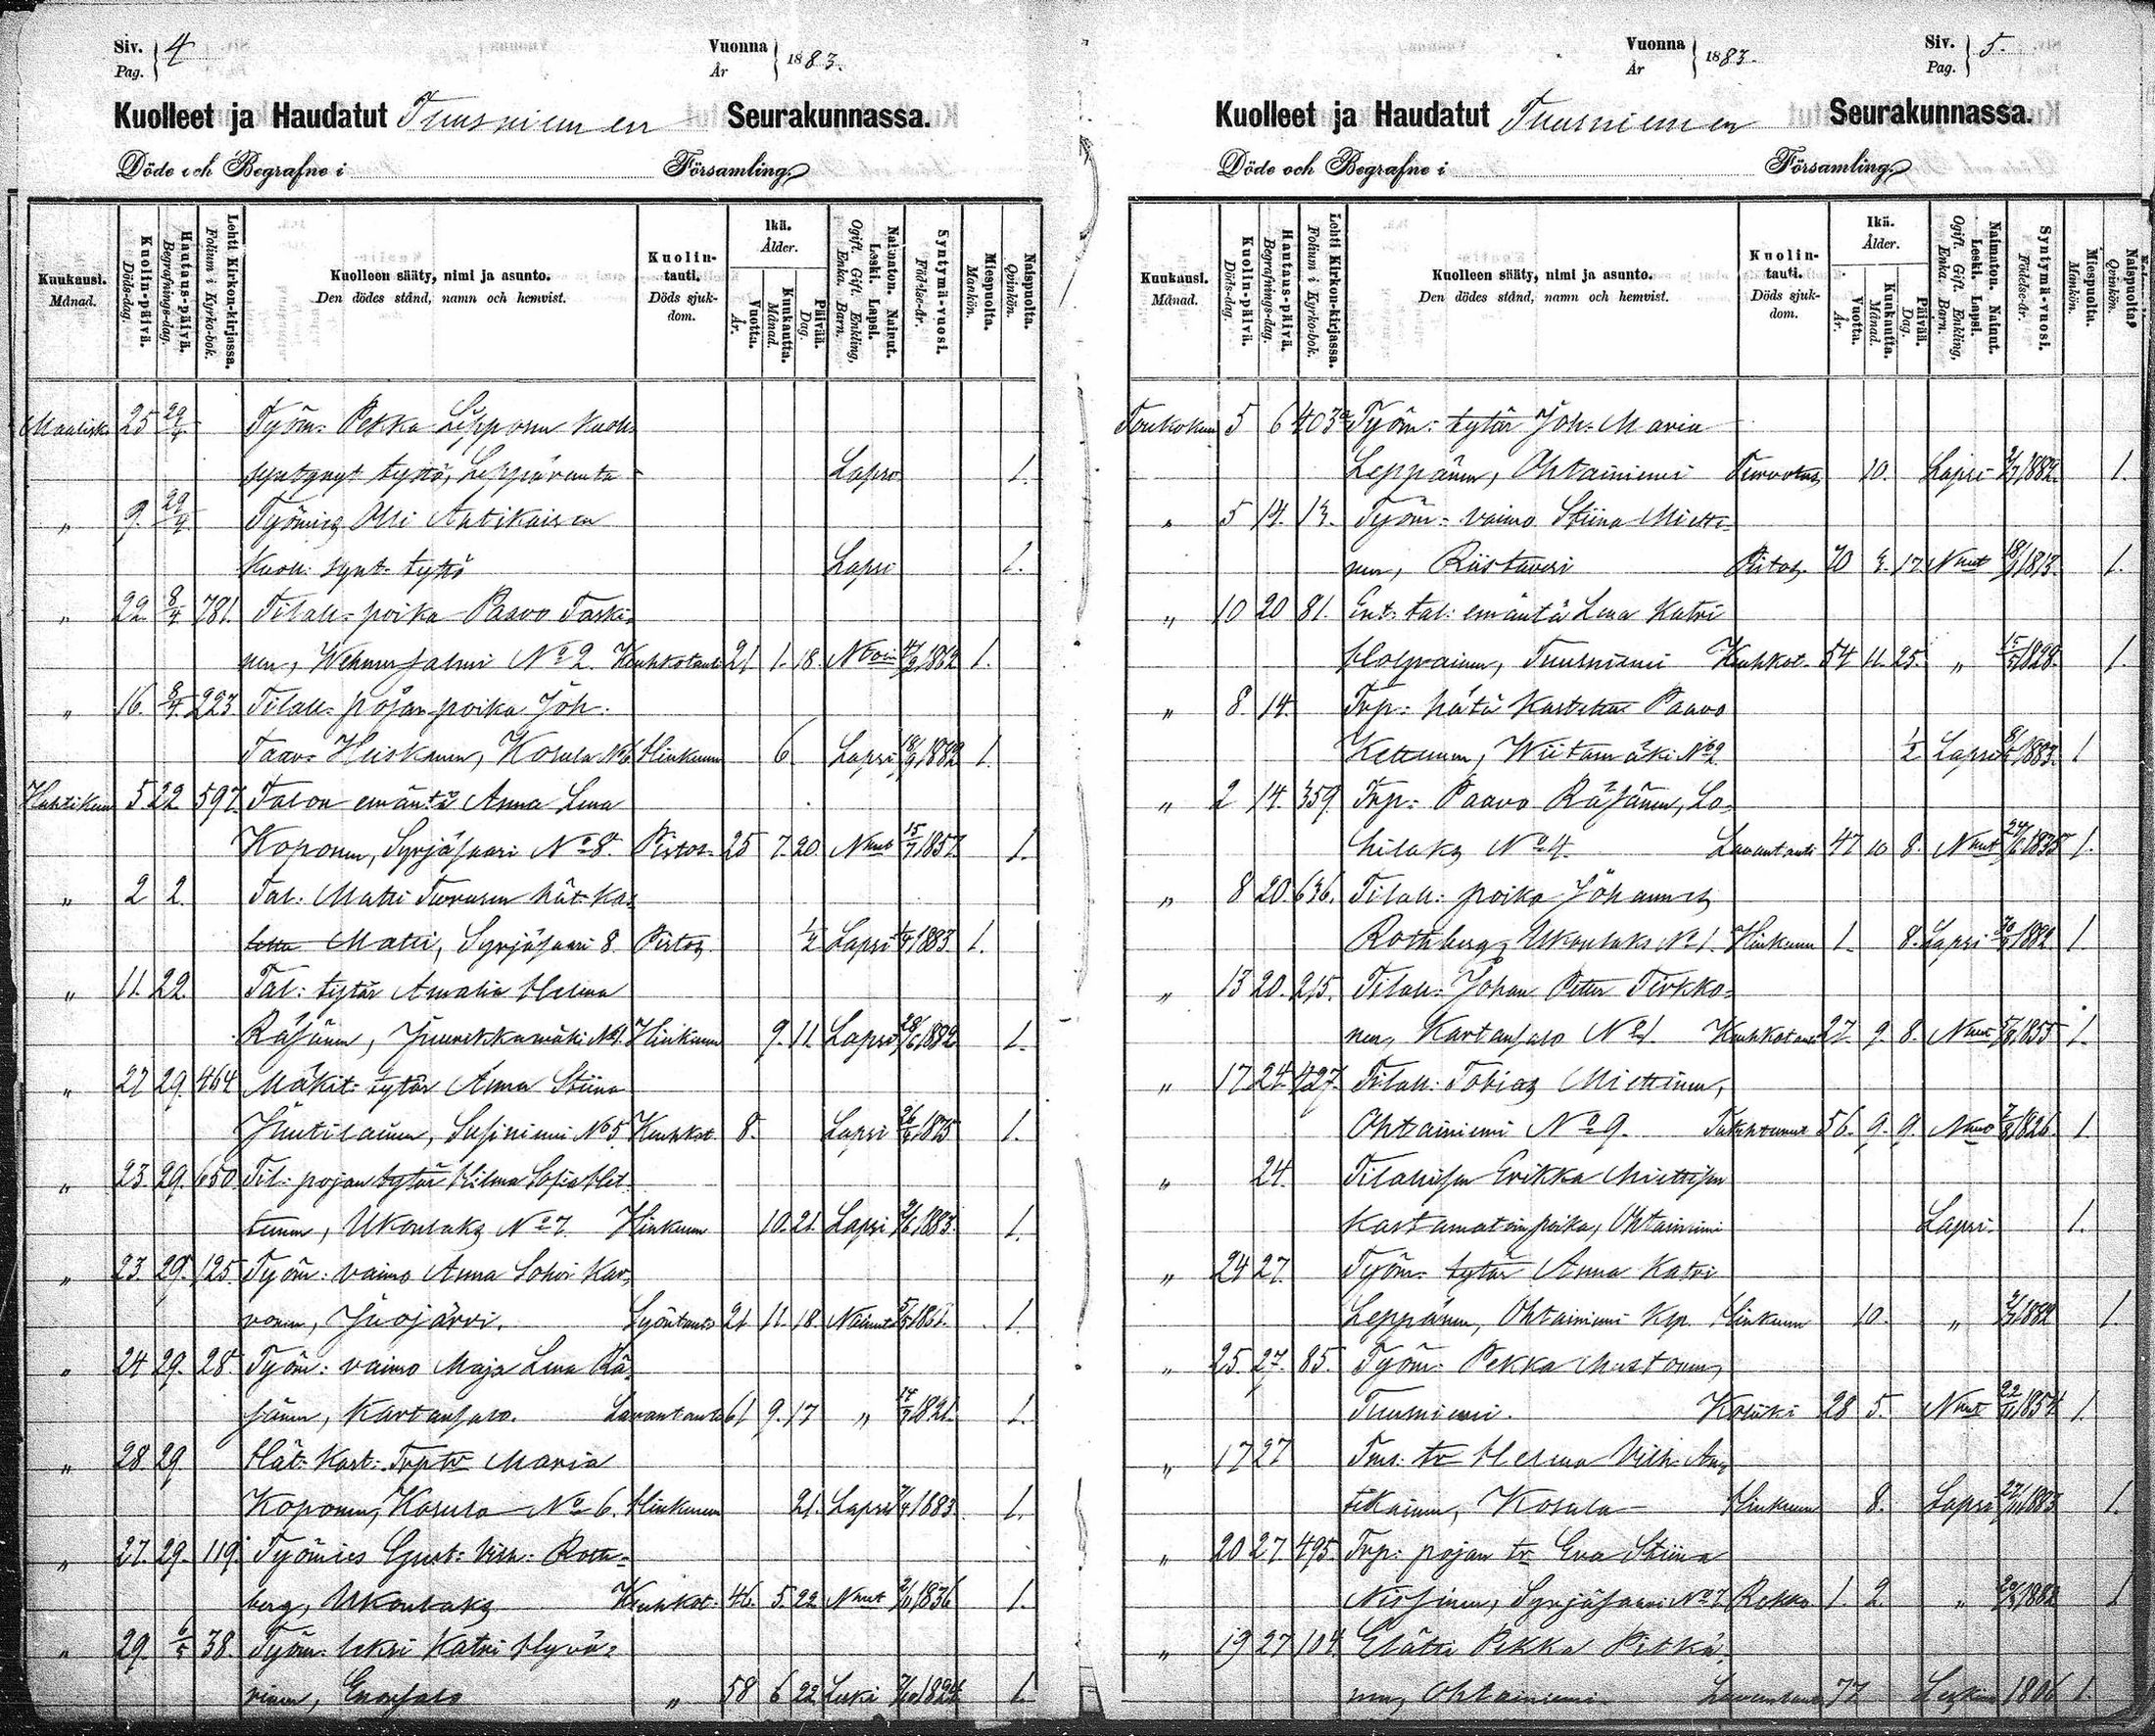 Siv. Pag. 4 Vuonna År 1883.
Kuolleet ja Haudatut Tuusniemen Seurakunnassa.
Döde och Begrafne i Församling.
Kuukausi. Månad.
Kuolin-päivä. Döds-dag.
Hautaus-päivä. Begrafnings-dag.
Lehti Kirkon-kirjassa. Folium i Kyrko-bok.
Kuolleen sääty, nimi ja asunto.
Den dödes stånd, namn och hemvist.
Kuolin-tauti. Döds sjukdom.
Ikä. Ålder.
Vuotta. År.
Kuukautta. Månad.
Päivää. Dag.
Naimaton. Nainut. Leski. Lapsi.
Ogift. Gift. Enkling, Enka. Barn.
Syntymä-vuosi. Födelse-år.
Miespuolta. Mankön.
Naispuolta. Qvinkön.
Maalisk. 25 29/4 Työm: Pekka Lepposen kuoll.
syntynyt tyttö, Leppäranta Lapsi 1.
„ 9. 29/4 Työmies Olli Antikaisen
Kuoll: synt: tyttö Lapsi 1.
„ 22. 8/4 781. Tilall: poika Paavo Taski-
nen, Wehmersalmi No 2. Keuhkotauti 21 1. 18. 1862 1.
„ 16. 8/4 223 Tilall: pojan poika Joh.
Taav. Heiskanen, Kosula No 6 Hinkunen 6 Lapsi 1882 1.
Huhtikuu 5 22 597. Talon emäntä Anna Lena
Koponen, Syrjäsaari No 8. Pistos 25 7. 20 Nnut 15/7 1857. 1.
„ 2 2. Tal: Matti Turusen hät: ka-
Matti, Syrjäsaari 8. Pistos 1/2 Lapsi 1883 1.
„ 11. 22. Tal: tytär Amalia Helena
Räsänen, Juurikkamäki No 1. Hinkunen 9. 11. Lapsi 1882 1.
„ 27 29. 464 Mäkit: tytär Anna Stiina
Juutilainen, Susiniemi No 5 Keuhkot. 8. Lapsi 1875 1.
„ 23. 29. 650 Til: pojan tytär Hilma Sofia Hit-
tunen, Ukonlaks No 7. Hinkunen 10. 21. Lapsi 1883. 1.
„ 23. 29. 125. Työm: vaimo Anna Sohvi Kar-
vonen, Juojärvi. 21. 11. 18. 1861. 1.
„ 24 29. 28. Työm: vaimo Maja Lena Rä-
sänen, Kartansalo. Lavantauti 61 9. 17 „ 14/7 1821. 1.
„ 28. 29. Hät: Kast: Trp tr Maria
Koponen, Kosula No 6. Hinkunen 21. Lapsi 1883. 1.
„ 27. 29. 119. Työmies Gust: Vilh: Roth-
berg, Ukonlaks Keuhkot. 46. 5. 22 Nnut 1836 1.
„ 29. 38. Työm: leski Katri Hyvä-
rinen, Enonsalo „ 58 6 22 Leski 1824 1.
Vuonna År 1883. Siv. Pag. 5.
Kuolleet ja Haudatut Tuusniemen Seurakunnassa.
Döde och Begrafne i Församling.
Kuukausi. Månad.
Kuolin-päivä. Döds-dag.
Hautaus-päivä. Begrafnings-dag.
Lehti Kirkon-kirjassa. Folium i Kyrko-bok.
Kuolleen sääty, nimi ja asunto.
Den dödes stånd, namn och hemvist.
Kuolin-tauti. Döds sjukdom.
Ikä. Ålder.
Vuotta. År.
Kuukautta. Månad.
Päivää. Dag.
Naimaton. Nainut. Leski. Lapsi.
Ogift. Gift. Enkling, Enka. Barn.
Syntymä-vuosi. Födelse-år.
Miespuolta. Mankön.
Naispuolta. Qvinkön.
Toukokuu 5 6 403 Työm: tytär Joh: Maria
Leppänen, Ohtainiemi Turvotus 10. Lapsi 1882. 1.
„ 5 14. 13. Työm: vaimo Stiina Mietti-
nen, Riistaveri Pistos 70 17. Nnut 1813. 1.
„ 10 20 81. Ent: tal: emäntä Lena Katri
Tuusniemi Keuhkot. 54 11. 25. „ 15/5 1828. 1.
„ 8. 14. Trp: hätä Paavo
Kettunen, Wiitamäki No 2 1/2 Lapsi 1883. 1
„ 2 14. 359. Trp: Paavo Räsänen, Lo-
hilaks No 4. Lavantauti 47 10 8. Nnut 1835 1.
„ 8 20. 636. Tilall: poika Johannes
Rothberg, Ukonlaks No 1. Hinkunen 1. 8. Lapsi 1882 1
„ 13 20. 215. Tilall: Johan Petter Tirkko-
nen, Kartansalo No 1. Keuhkotauti 27. 9. 8. Nnut 1855 1.
„ 17 24. 427. Tilall: Tobias Miettinen,
Ohtainiemi No 9. 56. 9. 9. 1826. 1.
„ 24. Tilallisen Erikka Miettisen
kastamatoin poika, Ohtainiemi Lapsi. 1.
„ 24 27. Työm: tytär Anna Katri
Leppänen, Ohtainiemi Hinkunen 10. „ 1882 1.
„ 25. 27. 85. Työm: Pekka Mustonen,
Tuusniemi. Koliiki 28 5. Nnut 1854 1.
„ 17 27 Tms: tr Helena Vilh. An-
tikainen, Kosula Hinkunen 8. Lapsi 1883 1.
„ 20 27. 495. Trp: pojan tr Eva Stiina
Nissinen, Syrjäsaari No 7 Rokko 1. 2. „ 1882 1
„ 19 27 104. Elätti Pekka Pitkä-
nen, Ohtainiemi Lavantauti 77 Leski 1806 1.